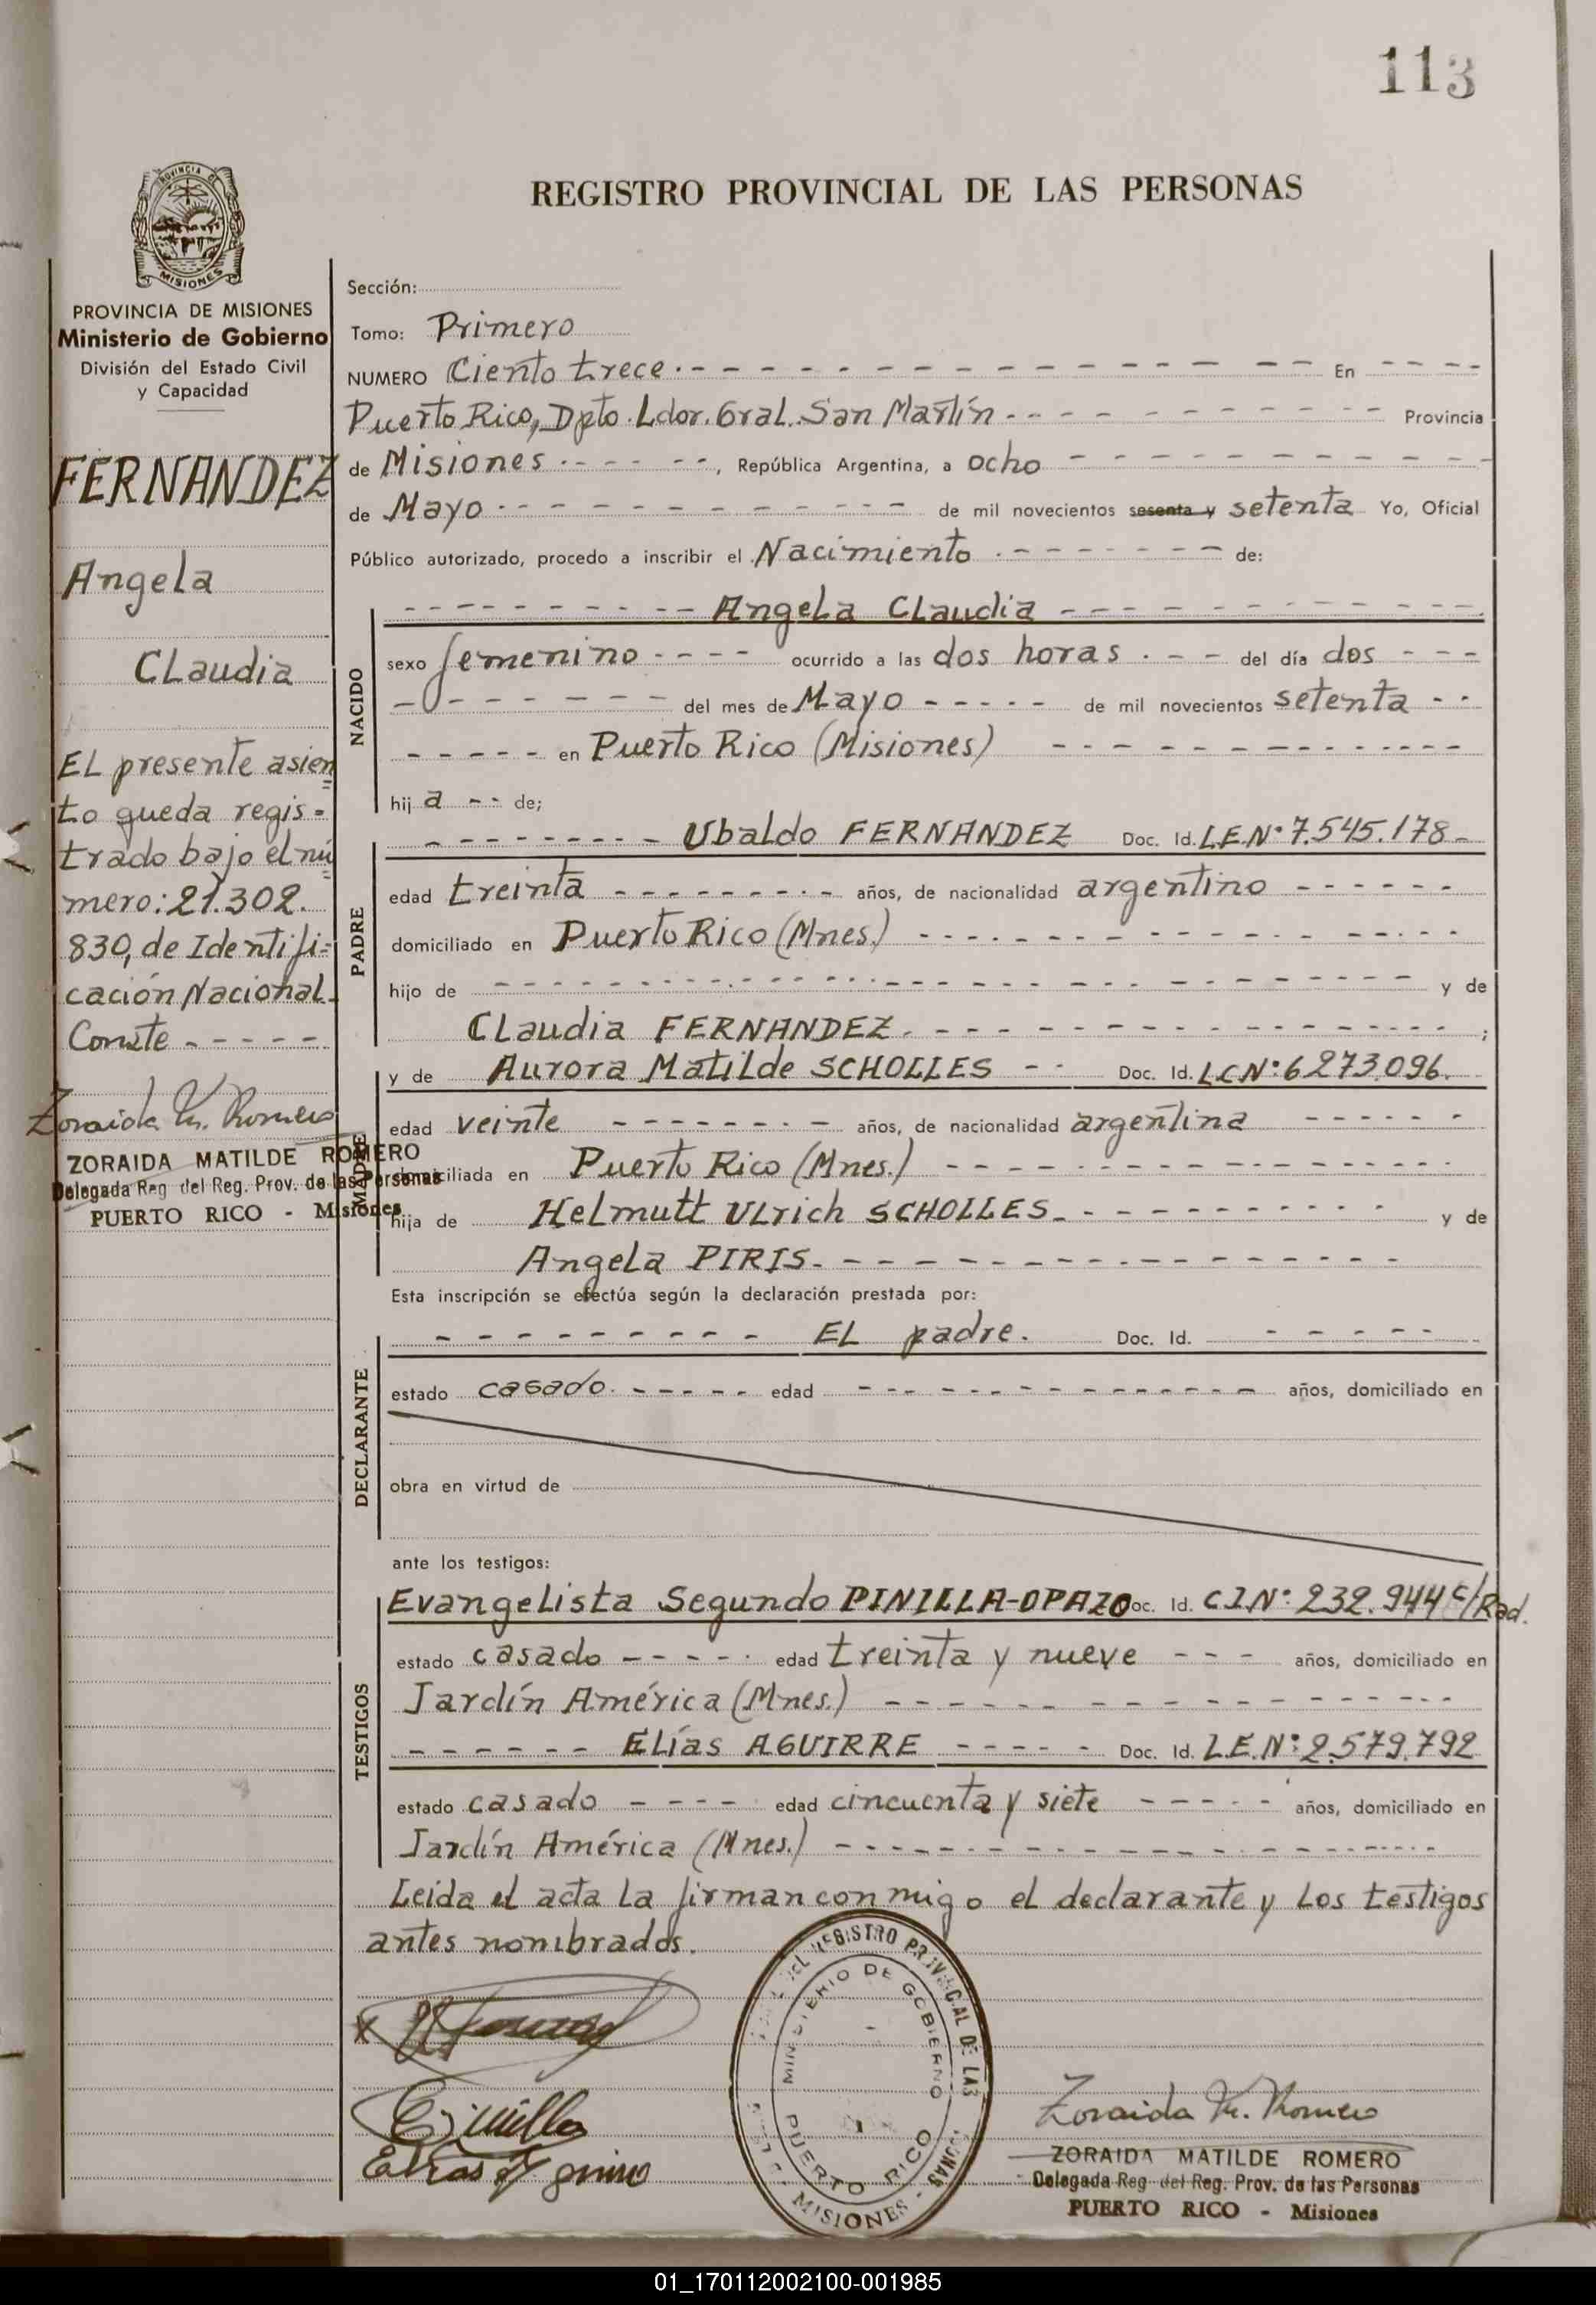 113
PROVINCIA DE
MISIONES
REGISTRO PROVINCIAL DE LAS PERSONAS
PROVINCIA DE MISIONES
Ministerio de Gobierno
División del Estado Civil
y Capacidad
FERNANDEZ
Angela
Claudia
El presente asien
to queda regis=
trado bajo el nú
mero: 21.302.
830, de Identifi=
cación Nacional.
Conste - - - - -
Zoraida M. Romero
ZORAIDA MATILDE ROMERO
Delegada Reg del Reg. Prov. de las Personas
PUERTO RICO - Misiones
Sección:
Tomo: Primero
NUMERO Ciento trece. - - - En - - -
Puerto Rico, Dpto. Ldor. Gral. San Martín - - - Provincia
de Misiones - - -, República Argentina, a ocho - - -
de Mayo - - - de mil novecientos sesenta y setenta Yo, Oficial
Público autorizado, procedo a inscribir el Nacimiento - - - de:
NACIDO
- - - Angela Claudia - - -
sexo femenino - - - ocurrido a las dos horas. - - - del día dos - - -
- - - del mes de Mayo - - - de mil novecientos setenta - -
- - - en Puerto Rico (Misiones) - - -
hij a - - de;
PADRE
- - - Ubaldo FERNANDEZ Doc. Id. L.E.N° 7.545.178 -
edad treinta - - - años, de nacionalidad argentino - - -
domiciliado en Puerto Rico (Mnes.) - - -
hijo de - - - y de
Claudia FERNANDEZ. - - - ;
MADRE
y de Aurora Matilde SCHOLLES - - Doc. Id. L.C.N°: 6273.096.
edad veinte - - - años, de nacionalidad argentina - - -
domiciliada en Puerto Rico (Mnes.) - - -
hija de Helmutt Ulrich SCHOLLES - - - y de
Angela PIRIS. - - -
Esta inscripción se efectúa según la declaración prestada por:
DECLARANTE
- - - El padre. Doc. Id. - - -
estado casado. - - - edad - - - años, domiciliado en
obra en virtud de
ante los testigos:
TESTIGOS
Evangelista Segundo PINILLA-OPAZO Doc. Id. C.I.N° 232.944 C/Rad.
estado casado - - - edad treinta y nueve - - - años, domiciliado en
Jardín América (Mnes.) - - -
- - - Elías AGUIRRE - - - Doc. Id. L.E.N°: 2.579.792
estado casado - - - edad cincuenta y siete - - - años, domiciliado en
Jardín América (Mnes.) - - -
Leida el acta la firman conmigo el declarante y los testigos
antes nombrados.
DEL REGISTRO PROVINCIAL DE LAS
MINISTERIO DE GOBIERNO
PUERTO RICO
MISIONES
Zoraida M. Romero
ZORAIDA MATILDE ROMERO
Delegada Reg del Reg. Prov. de las Personas
PUERTO RICO - Misiones
01_170112002100-001985